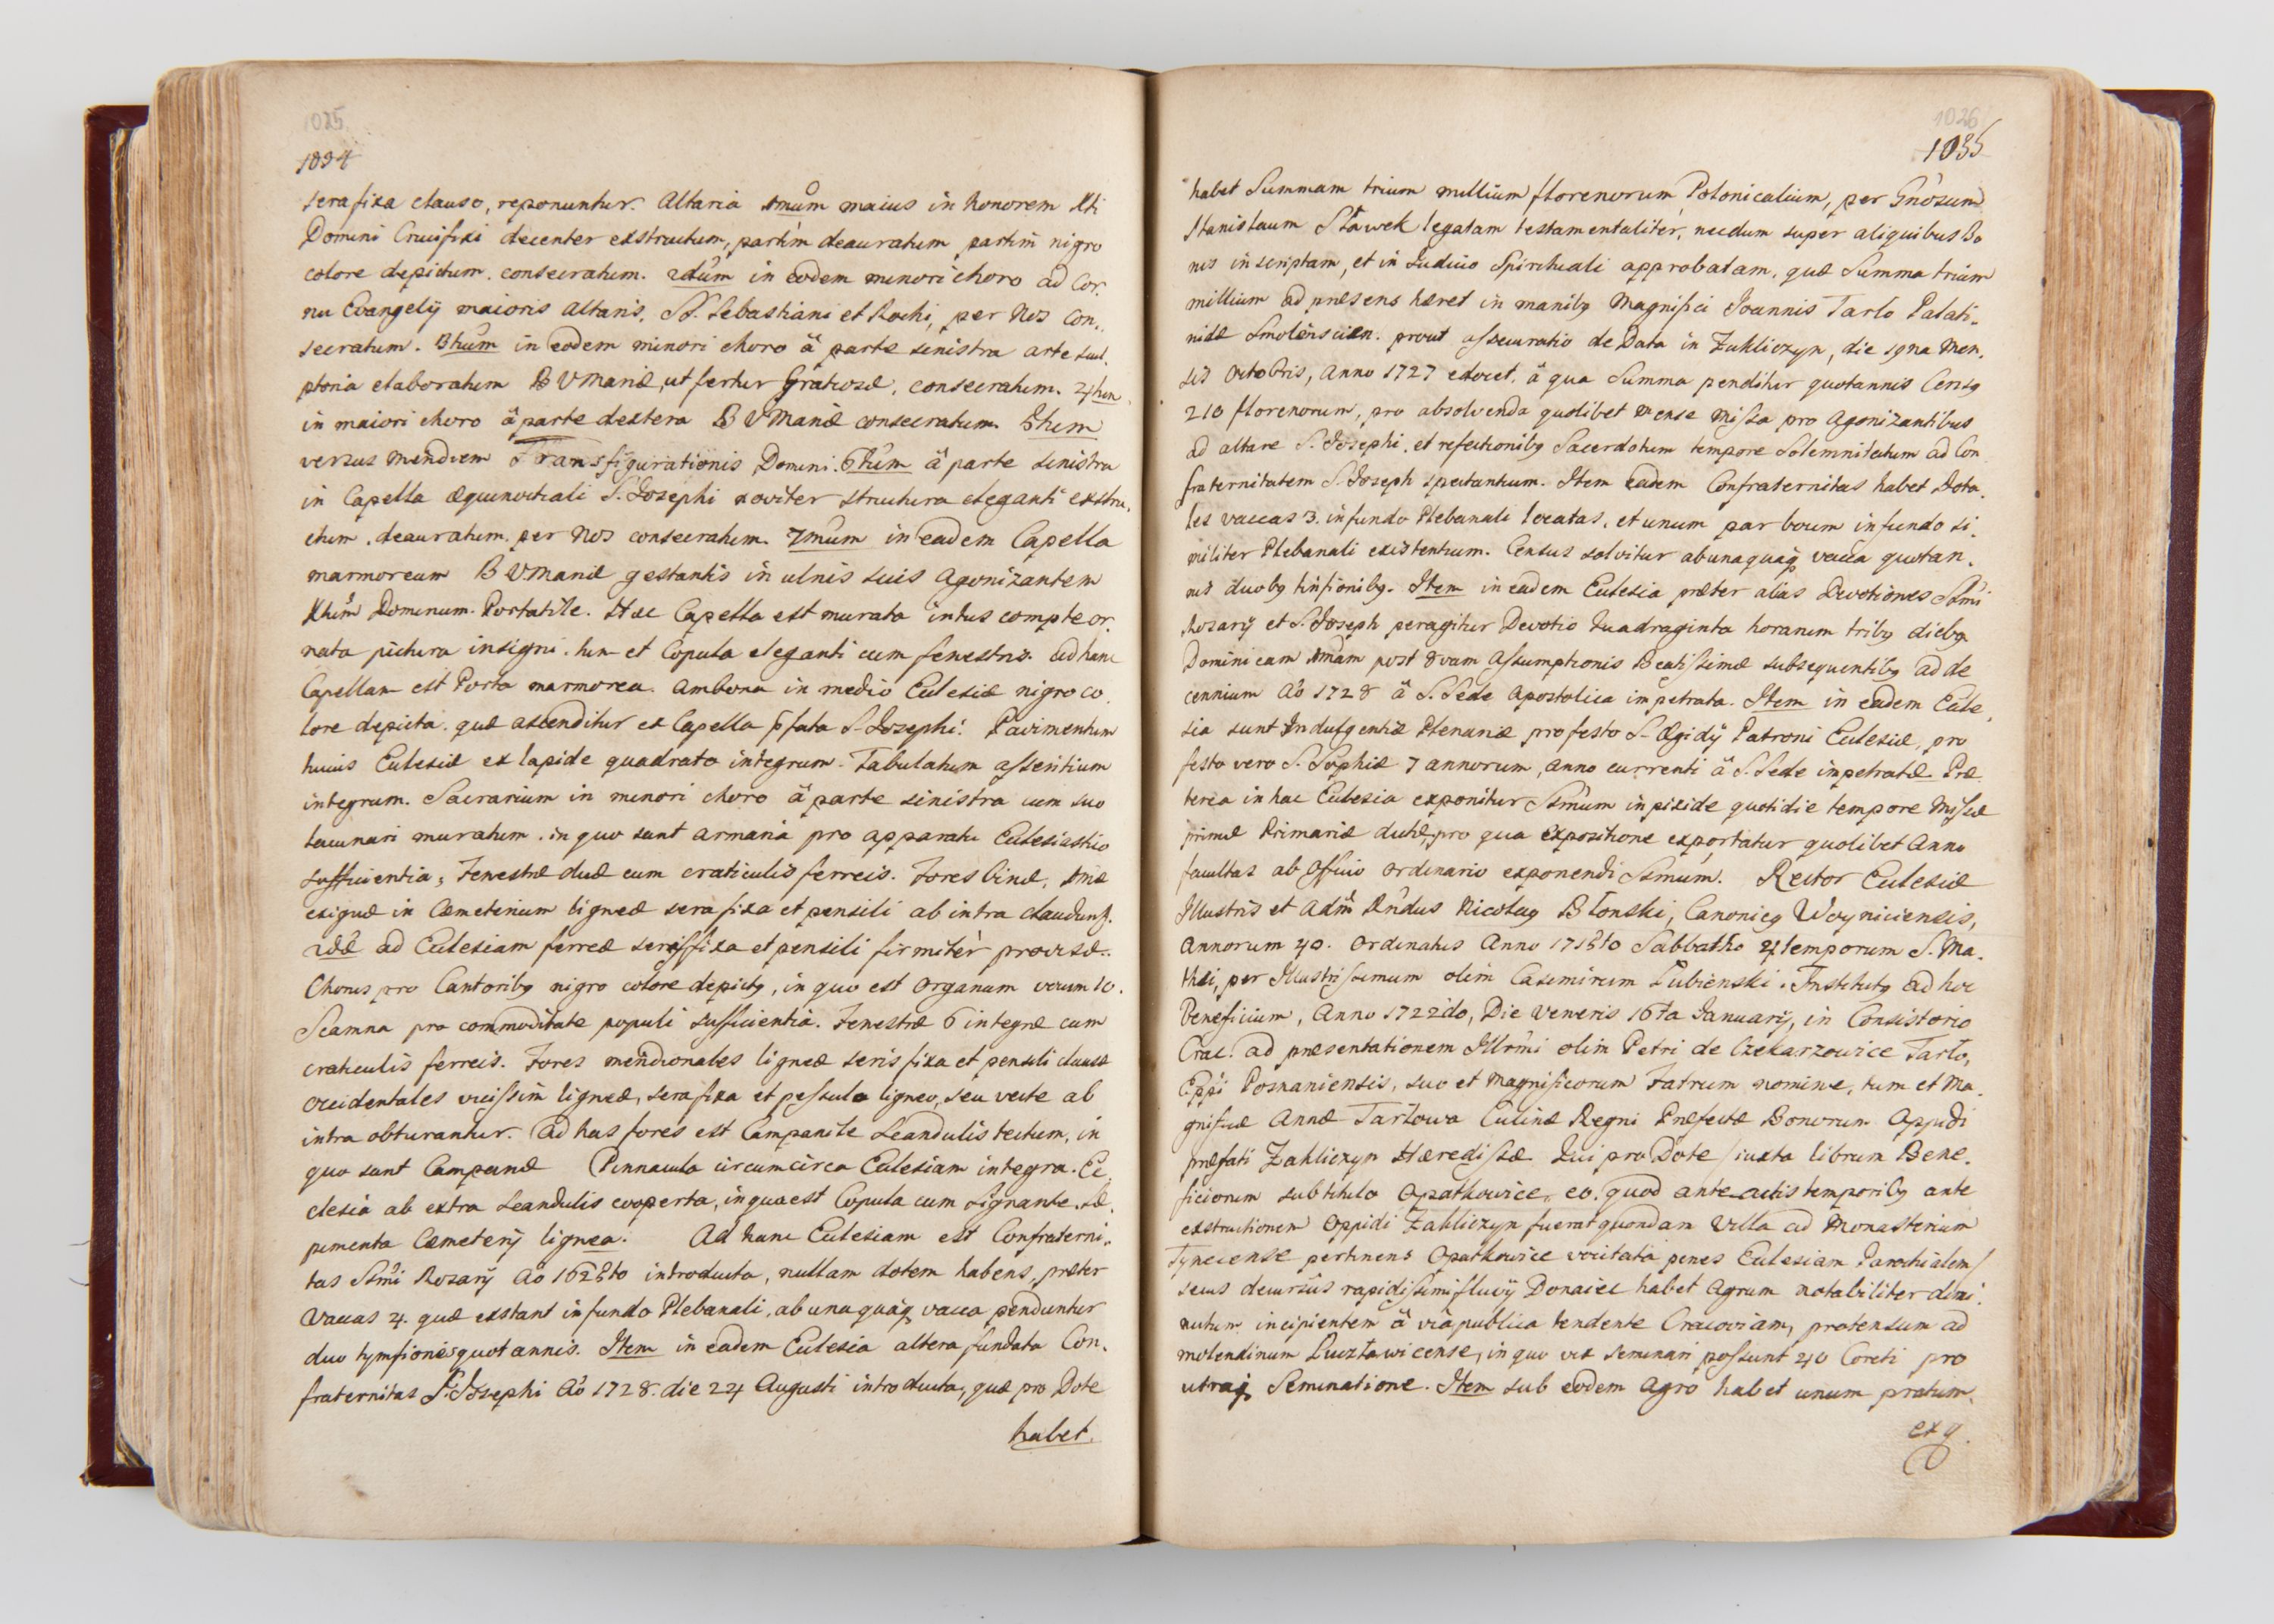 1025
1034
sera fixa clauso, reponuntur. Altaria 1mum maius in honorem Xti
Domini Crucifixi decenter exstructum, partim deauratum partim nigro
colore depictum. consecratum. 2dum in eodem minori choro ad Cor.
nu Evangelÿ maioris altaris, SS. Sebastiani et Rochi, per Nos Con.
secratum. 3tium in eodem minori choro â parte sinistra arte scul.
ptoria elaboratum B V Mariæ, ut fertur Gratiosæ, consecratum. 4tum
in maiori choro â parte dextera B V Mariæ consecratum. 5tum
versus meridiem Transfigurationis Domini. 6tum â parte sinistra
in Capella æquinoctiali S. Josephi noviter structura eleganti exstru.
ctum, deauratum per Nos consecratum. 7mum in eadem Capella
marmoreum B V Mariæ gestantis in ulnis suis Agonizantem
Xtum Dominum. Portatile. Hæc Capella est murata intus compte or.
nata pictura insigni, tum et Copula eleganti cum fenestris. Ad hanc
Capellam est Porta marmorea. Ambona in medio Eclesiæ nigro co.
lore depicta, quæ ascenditur ex Capella pfata S. Josephi. Pavimentum
huius Eclesiæ ex lapide quadrato integrum. Tabulatum asseritium
integrum. Sacrarium in minori choro â parte sinistra cum suo
lacunari muratum, in quo sunt armaria pro apparatu Eclesiastico
sufficientia; Fenestræ duæ cum craticulis ferreis. Fores binæ, 1mæ
exiguæ in Cæmeterium ligneæ sera fixa et pensili ab intra clauduntr.
2dæ ad Eclesiam ferreæ sera fixa et pensili firmitèr provisæ.
Chorus pro Cantoribg nigro colore depictg, in quo est Organum vocum 10.
Scamna pro commoditate populi sufficientia. Fenestræ 6 integræ cum
craticulis ferreis. Fores meridionales ligneæ seris fixa et pensili clausæ
occidentales vicissim ligneæ, sera fixa et pessulo ligneo, seu vecte ab
intra obturantur. Ad has fores est Campanile Scandulis tectum, in
quo sunt Campanæ Pinnacula circumcirca Eclesiam integra. Ec.
clesia ab extra Scandulis cooperta, in qua est Copula cum Signante. Sæ.
pimenta Cæmeterÿ lignea. Ad hanc Eclesiam est Confraterni.
tas SSmi Rosarÿ Aô 1625to introducta, nullam dotem habens, præter
Vaccas 4. quæ exstant in fundo Plebanali, ab una quaq vacca penduntur
duo tymfiones quot annis. Item in eadem Eclesia altera fundata Con.
fraternitas S. Josephi Aô 1728. die 24 Augusti introducta, quæ pro Dote
habet.
1026
1035
habet Summam trium millium florenorum Polonicalium, per Gnosum
Stanislaum Sławek legatam testamentalitèr, necdum super aliquibus Bo
nis inscriptam, et in Judicio Spirituali approbatam, quæ Summa trium
millium ad præsens hæret in manibg Magnifici Joannis Tarlo Palati.
nidæ Smolenscien. prout assecuratio de Data in Zakliczyn, die 19na Men.
sis Octobris, Anno 1727 edocet, â qua Summa penditur quotannis Censg
210 florenorum, pro absolvenda quolibet mense Missa pro Agonizantibus
ad altare S. Josephi, et refectionibg Sacerdotum tempore Solemnitatum ad Con
fraternitatem S. Joseph spectantium. Item eadem Confraternitas habet Dota.
les vaccas 3. in fundo Plebanali locatas, et unum par boum in fundo si.
militer Plebanali existentium. Census solvitur ab una quaq vacca quotan.
nis duobg tinfionibg. Item in eadem Eclesia præter alias Devotiones SSmi
Rosarÿ et S. Joseph peragitur Devotio Quadraginta horarum tribg diebg
Dominicam 1mam post 8vam Assumptionis Beatissimæ subsequentibg ad de
cennium Aô 1728 â S. Sede Apostolica impetrata. Item in eadem Ecle.
sia sunt Indulgentiæ Plenariæ pro festo S. Ægidÿ Patroni Eclesiæ, pro
festo vero S. Sophiæ 7 annorum, anno currenti â S. Sede impetratæ. Præ
terea in hac Eclesia exponitur SSmum in pixide quotidie tempore Missæ
primæ Primariæ dictæ, pro qua expositione exportatur quolibet Anno
facultas ab Officio ordinario exponendi SSmum. Rector Eclesiæ
Illustris et Adm Rndus Nicolag Błonski, Canonicg Woyniciensis,
Annorum 40. Ordinatus Anno 1715to Sabbatho 4temporum S. Ma.
thæi, per Illustrissimum olim Casimirum Łubienski. Institutg ad hoc
Beneficium, Anno 1722do, Die Veneris 16ta Januarÿ, in Consistorio
Crac. ad præsentationem Illrmi olim Petri de Czekarzowice Tarło,
Eppi Posnaniensis, suo et Magnificorum Fratrum nomine, tum et Ma.
gnificæ Annæ Tarłowa Culinæ Regni Præfectæ Bonorum Oppidi
præfati Zakliczyn Hæredissæ Qui pro Dote /iuxta librum Bene.
ficiorum sub titulo Opatkowice, eo. quod ante actis temporibg ante
exstructionem Oppidi Zakliczyn fuerat quondam Villa ad Monasterium
Tynecense pertinens Opatkowice vocitata penes Eclesiam Parochialem/
secus decursus rapidissimi fluvÿ Donaiec habet Agrum notabiliter dimi.
nutum incipientem â via publica tendente Cracoviam, protensum ad
molendinum Lusztawicense, in quo vix seminari possunt 40 Coreti pro
utraq Seminatione. Item sub eodem Agro habet unum pratum,
ex q.